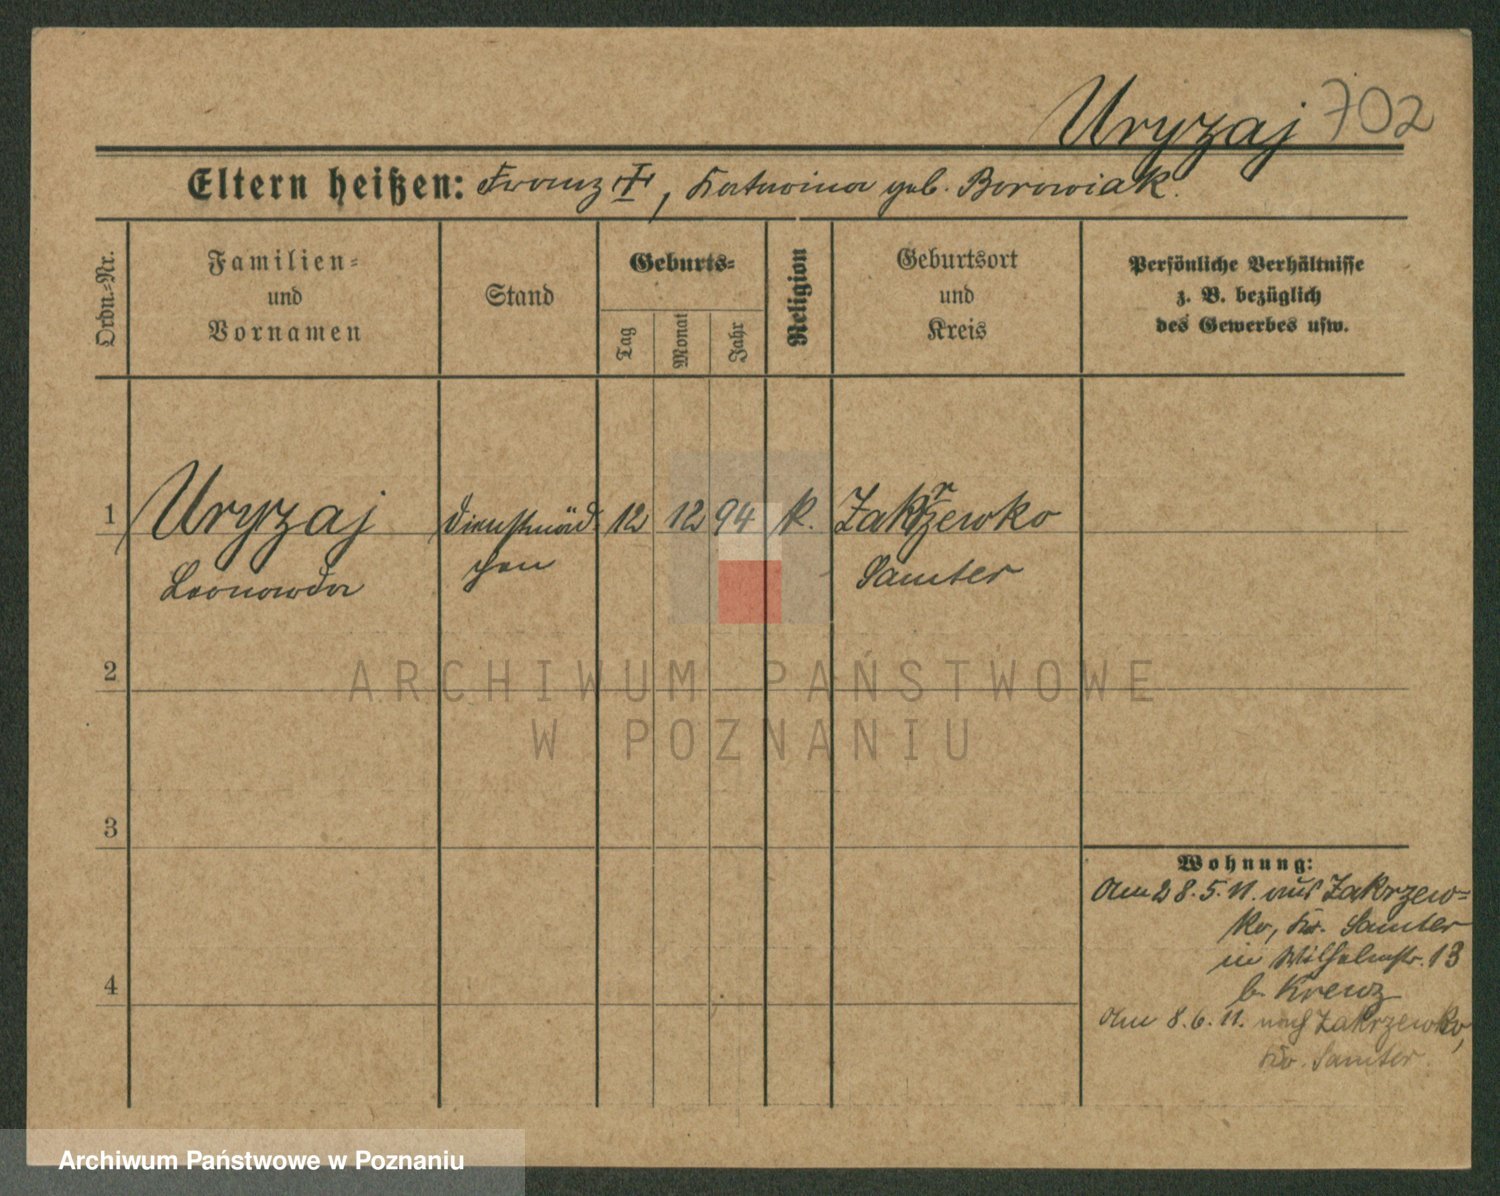 Uryzaj 702
Eltern heißen: Franz †, Katarina geb. Borowiak.
Ordn.-Nr.
Familien-
und
Vornamen
Stand
Geburts-
Tag
Monat
Jahr
Religion
Geburtsort
und
Kreis
Persönliche Verhältnisse
z. B. bezüglich
des Gewerbes usw.
1 Uryzaj Dienstmäd- 12 12 94 k. Zakrzewko
Leonarda chen Samter
2
ARCHIWUM PAŃSTWOWE
W POZNANIU
3
Wohnung:
Am 28.5.11. aus Zakrzew-
ko, Kr. Samter
in Wilhelmstr. 13
b. Krenz
4
Am 8.6.11. nach Zakrzewko,
Kr. Samter.
Archiwum Państwowe w Poznaniu